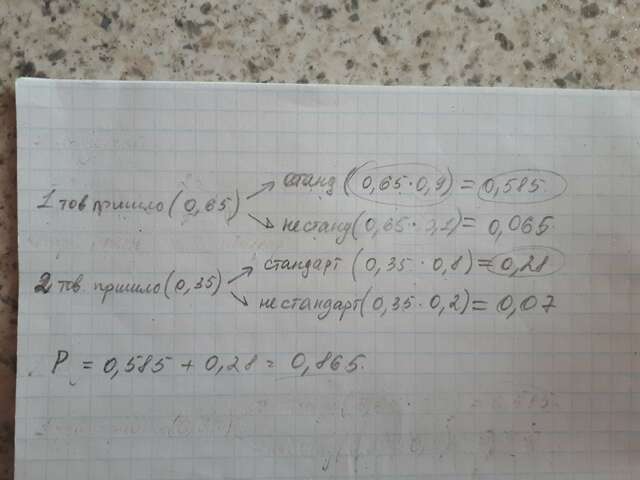 1 тов пришло (0,65) станд (0,65·0,9) = 0,585
нестанд (0,65· ) = 0,065
2 тов. пришло (0,35) стандарт (0,35·0,8) = 0,28
нестандарт (0,35·0,2) = 0,07
P = 0,585 + 0,28 = 0,865.